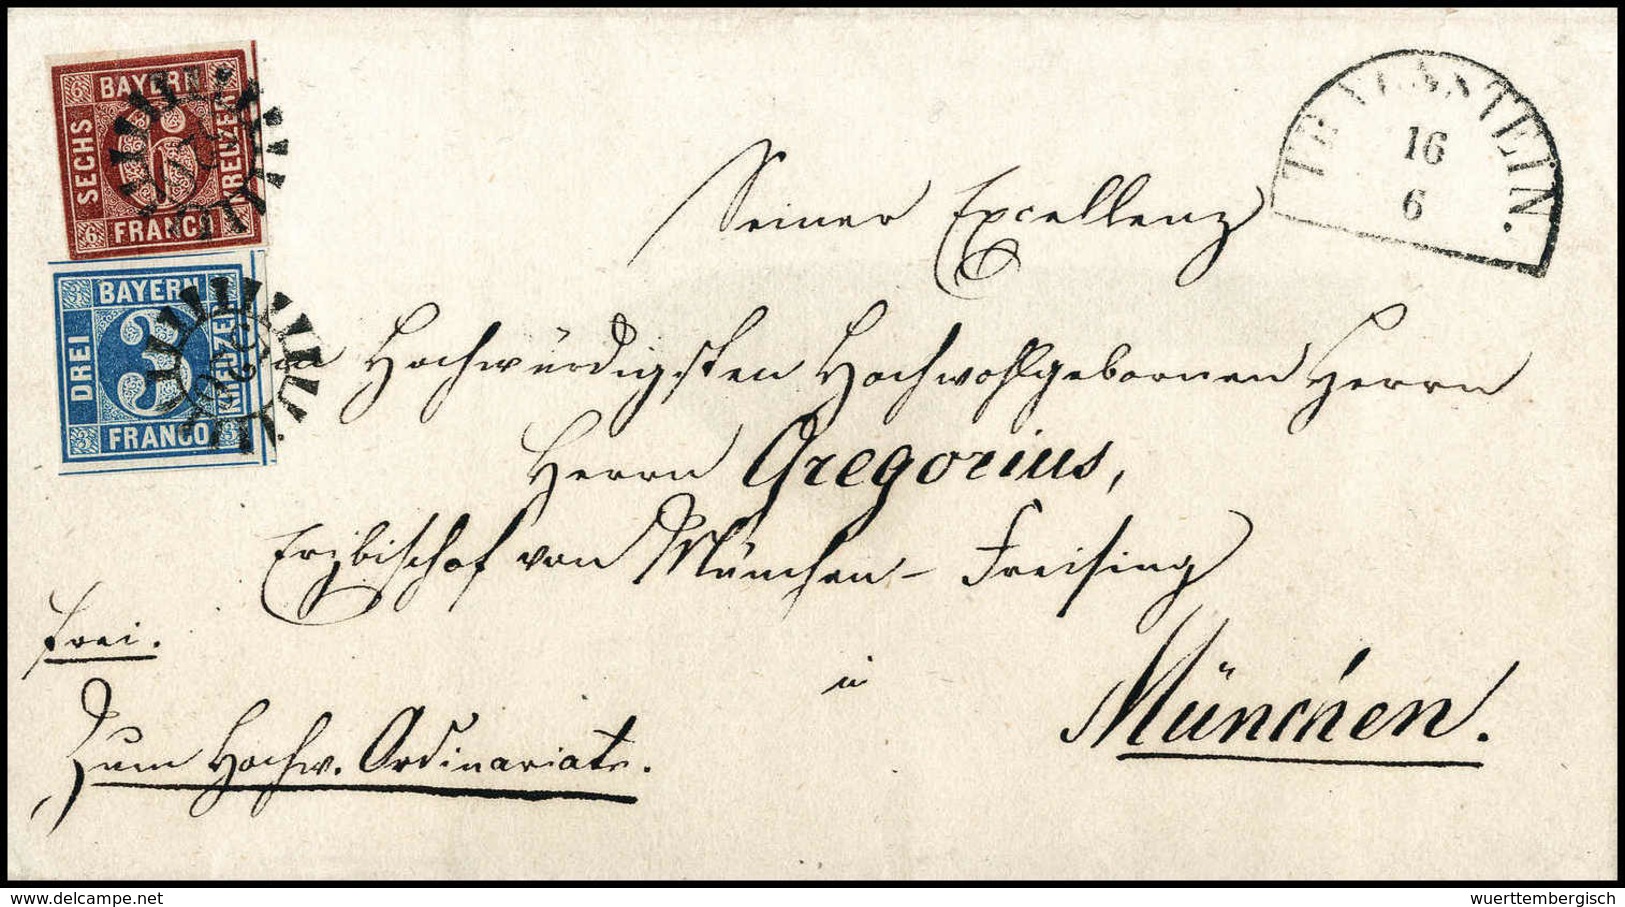 BAYERN
SECHS
KREUZER
FRANCO
6
6
BAYERN
DREI
3
KREUZER
FRANCO
TRAUNSTEIN.
16
6
Seiner Excellenz
Hochwürdigsten Hochwohlgebornen Herrn
Herrn Gregorius,
Erzbischof von München - Freising
frei.
in
München.
Zum Hochw. Ordinariate.
© delcampe.net
wuerttembergisch